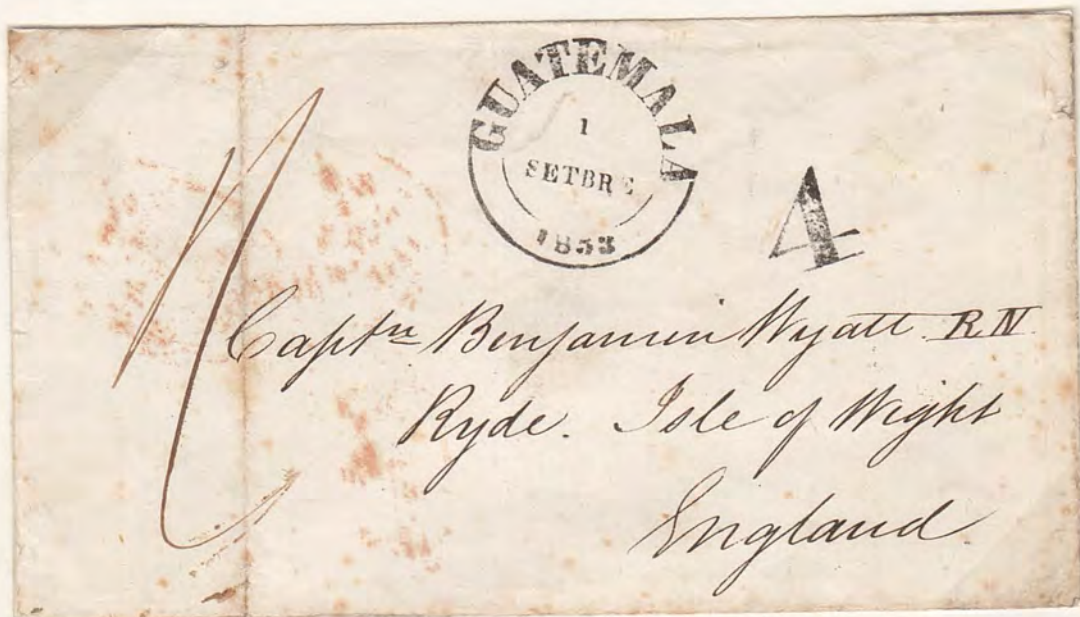 GUATEMALA
1
SETBRE
1853
4
Captn Benjamin Wyatt R N
Ryde. Isle of Wight
England